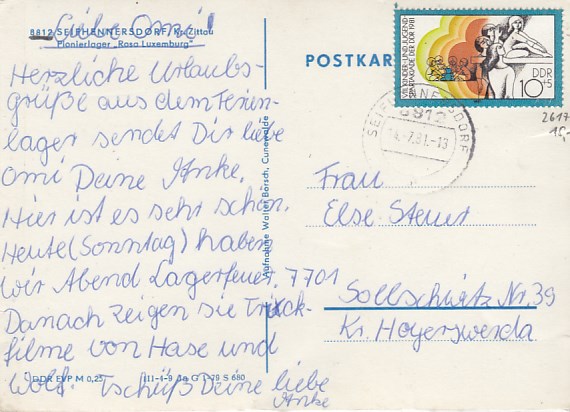 Liebe Omi!
8812 SEIFHENNERSDORF/Kr. Zittau
Pionierlager „Rosa Luxemburg"
Herzliche Urlaubs-
grüße aus dem Ferien-
lager sendet Dir liebe
Omi Deine Anke.
Hier ist es sehr schön.
Heute (Sonntag) haben
wir Abend Lagerfeuer.
Danach zeigen sie Trick-
filme von Hase und
Wolf. Tschüß Deine liebe
Anke
DDR EVP M 0,25 III-1-9 G 1-79 S 680
Aufnahme Walter Börsch, Cunewalde
POSTKAR
VIII. KINDER- UND JUGEND-
SPARTAKIADE DER DDR 1981
DDR
10+5
SEIFHENNERSDORF
8812
.7.81.-13
2617
10,-
Frau
Else Stenz
7701
Sollschwitz Nr. 39
Kr. Hoyerswerda